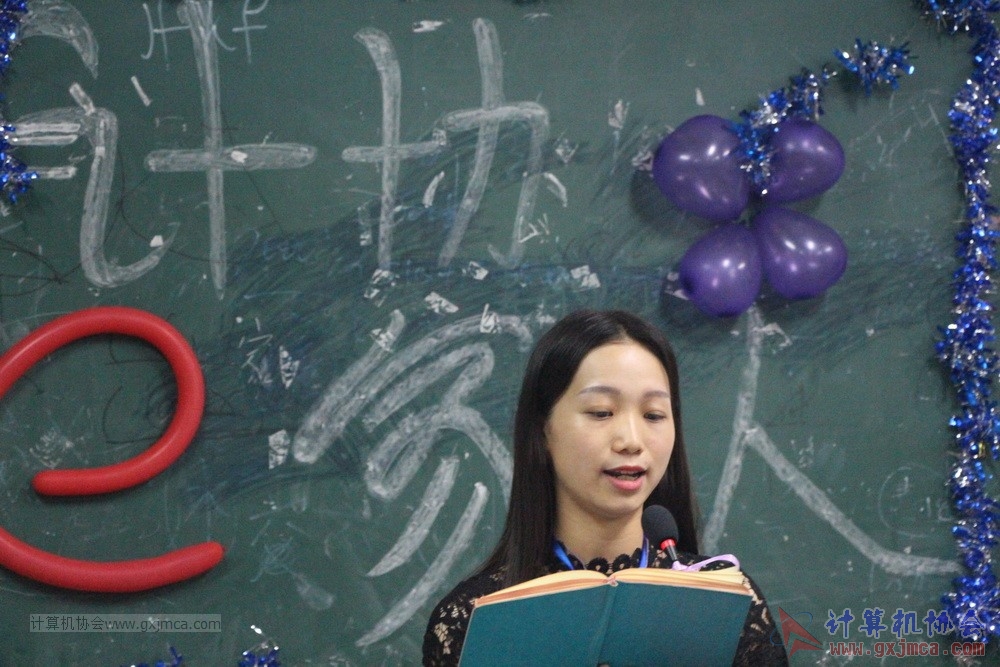 计协
家人
计算机协会www.gxjmca.com
计算机协会
www.gxjmca.com